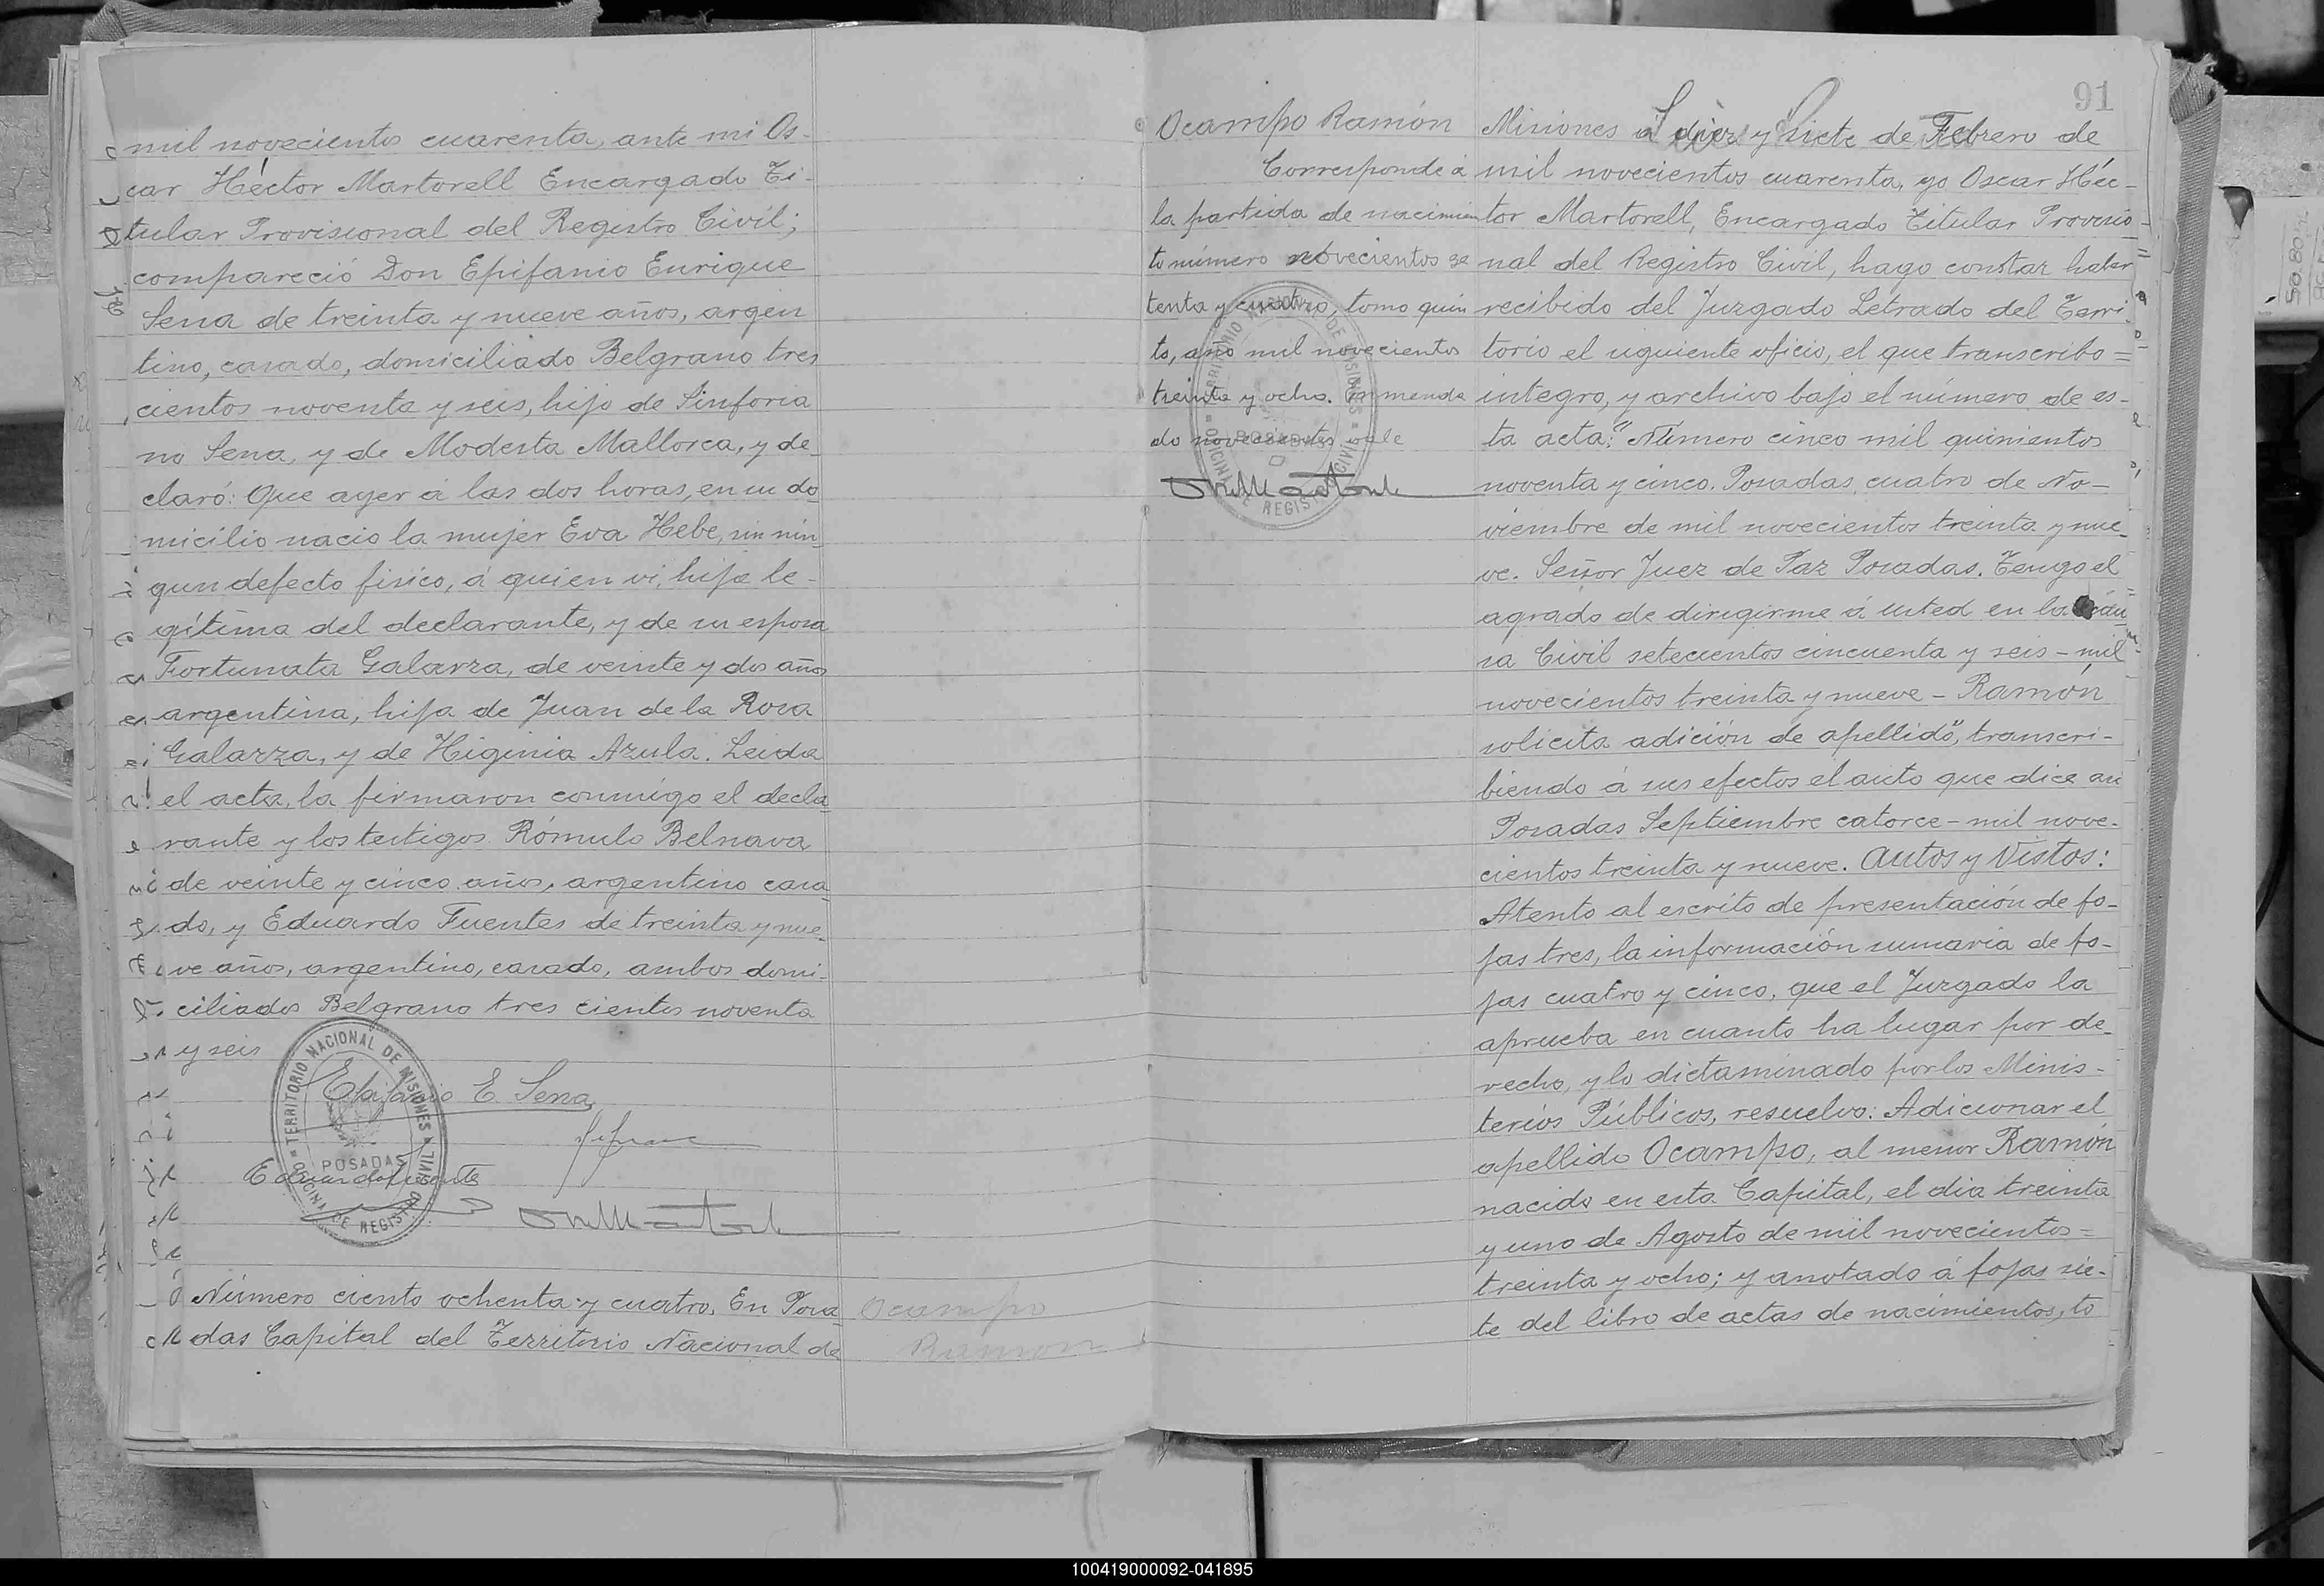 mil novecientos cuarenta, ante mi Os-
car Héctor Martorell Encargado Ti-
tular Provisional del Registro Civil;
compareció Don Epifanio Enrique
Sena de treinta y nueve años, argen
tino, casado, domiciliado Belgrano tres
cientos noventa y seis, hijo de Sinforia
no Sena, y de Modesta Mallorca, y de_
claró: Que ayer á las dos horas, en su do
micilio nacio la mujer Eva Hebe, sin nin_
gun defecto fisico, á quien vi, hija le-
gítima del declarante, y de su esposa
Fortunata Galarza, de veinte y dos años
argentina, hija de Juan de la Rosa
Galarza, y de Higinia Azula. Leida
el acta, la firmaron conmigo el decla
rante y los testigos Rómulo Belnava
de veinte y cinco años, argentino casa
do, y Eduardo Fuentes de treinta y nue_
ve años, argentino, casado, ambos domi-
ciliados Belgrano tres cientos noventa
y seis
Epifanio E. Sena
TERRITORIO NACIONAL DE MISIONES
POSADAS
OFICINA DE REGISTRO CIVIL
Número ciento ochenta y cuatro. En Posa
das Capital del Territorio Nacional de
Ocampo
Ramon
91
Ocampo Ramón
Corresponde á
la partida de nacimien
to número novecientos se
tenta y cuatro, tomo quin
to, año mil novecientos
treinta y ocho. Enmenda
do novecientos vale
TERRITORIO NACIONAL DE MISIONES
POSADAS
OFICINA DE REGISTRO CIVIL
Misiones á diez y siete de Febrero de
mil novecientos cuarenta, yo Oscar Héc-
tor Martorell, Encargado Titular Provisio_
nal del Registro Civil, hago constar haber
recibido del Juzgado Letrado del Terri-
torio el siguiente oficio, el que transcribo=
integro, y archivo bajo el número de es-
ta acta: "Número cinco mil quinientos
noventa y cinco. Posadas, cuatro de No-
viembre de mil novecientos treinta y nue_
ve. Señor Juez de Paz Posadas. Tengo el
agrado de dirigirme á usted en la cau
sa Civil setecientos cincuenta y seis - mil
novecientos treinta y nueve - Ramón
solicita adición de apellido", transcri-
biendo á sus efectos el auto que dice asi
Posadas Septiembre catorce - mil nove-
cientos treinta y nueve. Autos y Vistos:
Atento al escrito de presentación de fo-
jas tres, la información sumaria de fo-
jas cuatro y cinco, que el Juzgado la
aprueba en cuanto ha lugar por de_
recho, y lo dictaminado por los Minis-
terios Públicos, resuelvo: Adicionar el
apellido Ocampo, al menor Ramón
nacido en esta Capital, el dia treinta
y uno de Agosto de mil novecientos=
treinta y ocho; y anotado á fojas sie-
te del libro de actas de nacimientos, to
100419000092-041895